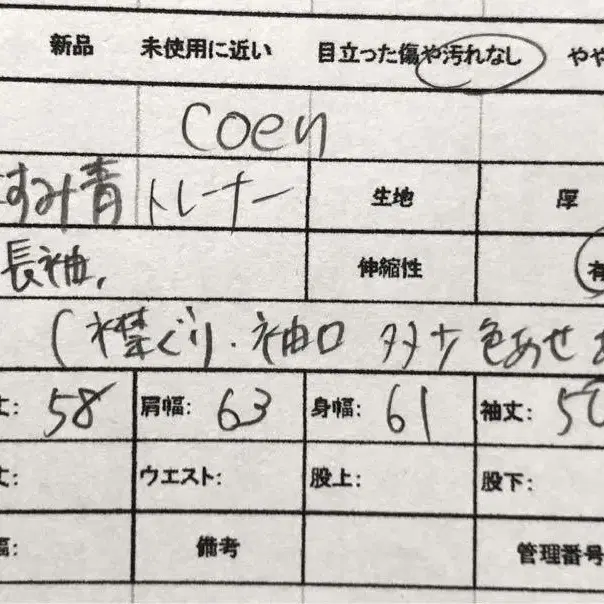 新品 未使用に近い 目立った傷や汚れなし やや
coen
すみ青トレーナー 生地 厚
長袖, 伸縮性 有
(襟ぐり・袖口 多少色あせ
丈: 58 肩幅: 63 身幅: 61 袖丈: 50
丈: ウエスト: 股上: 股下:
幅: 備考 管理番号